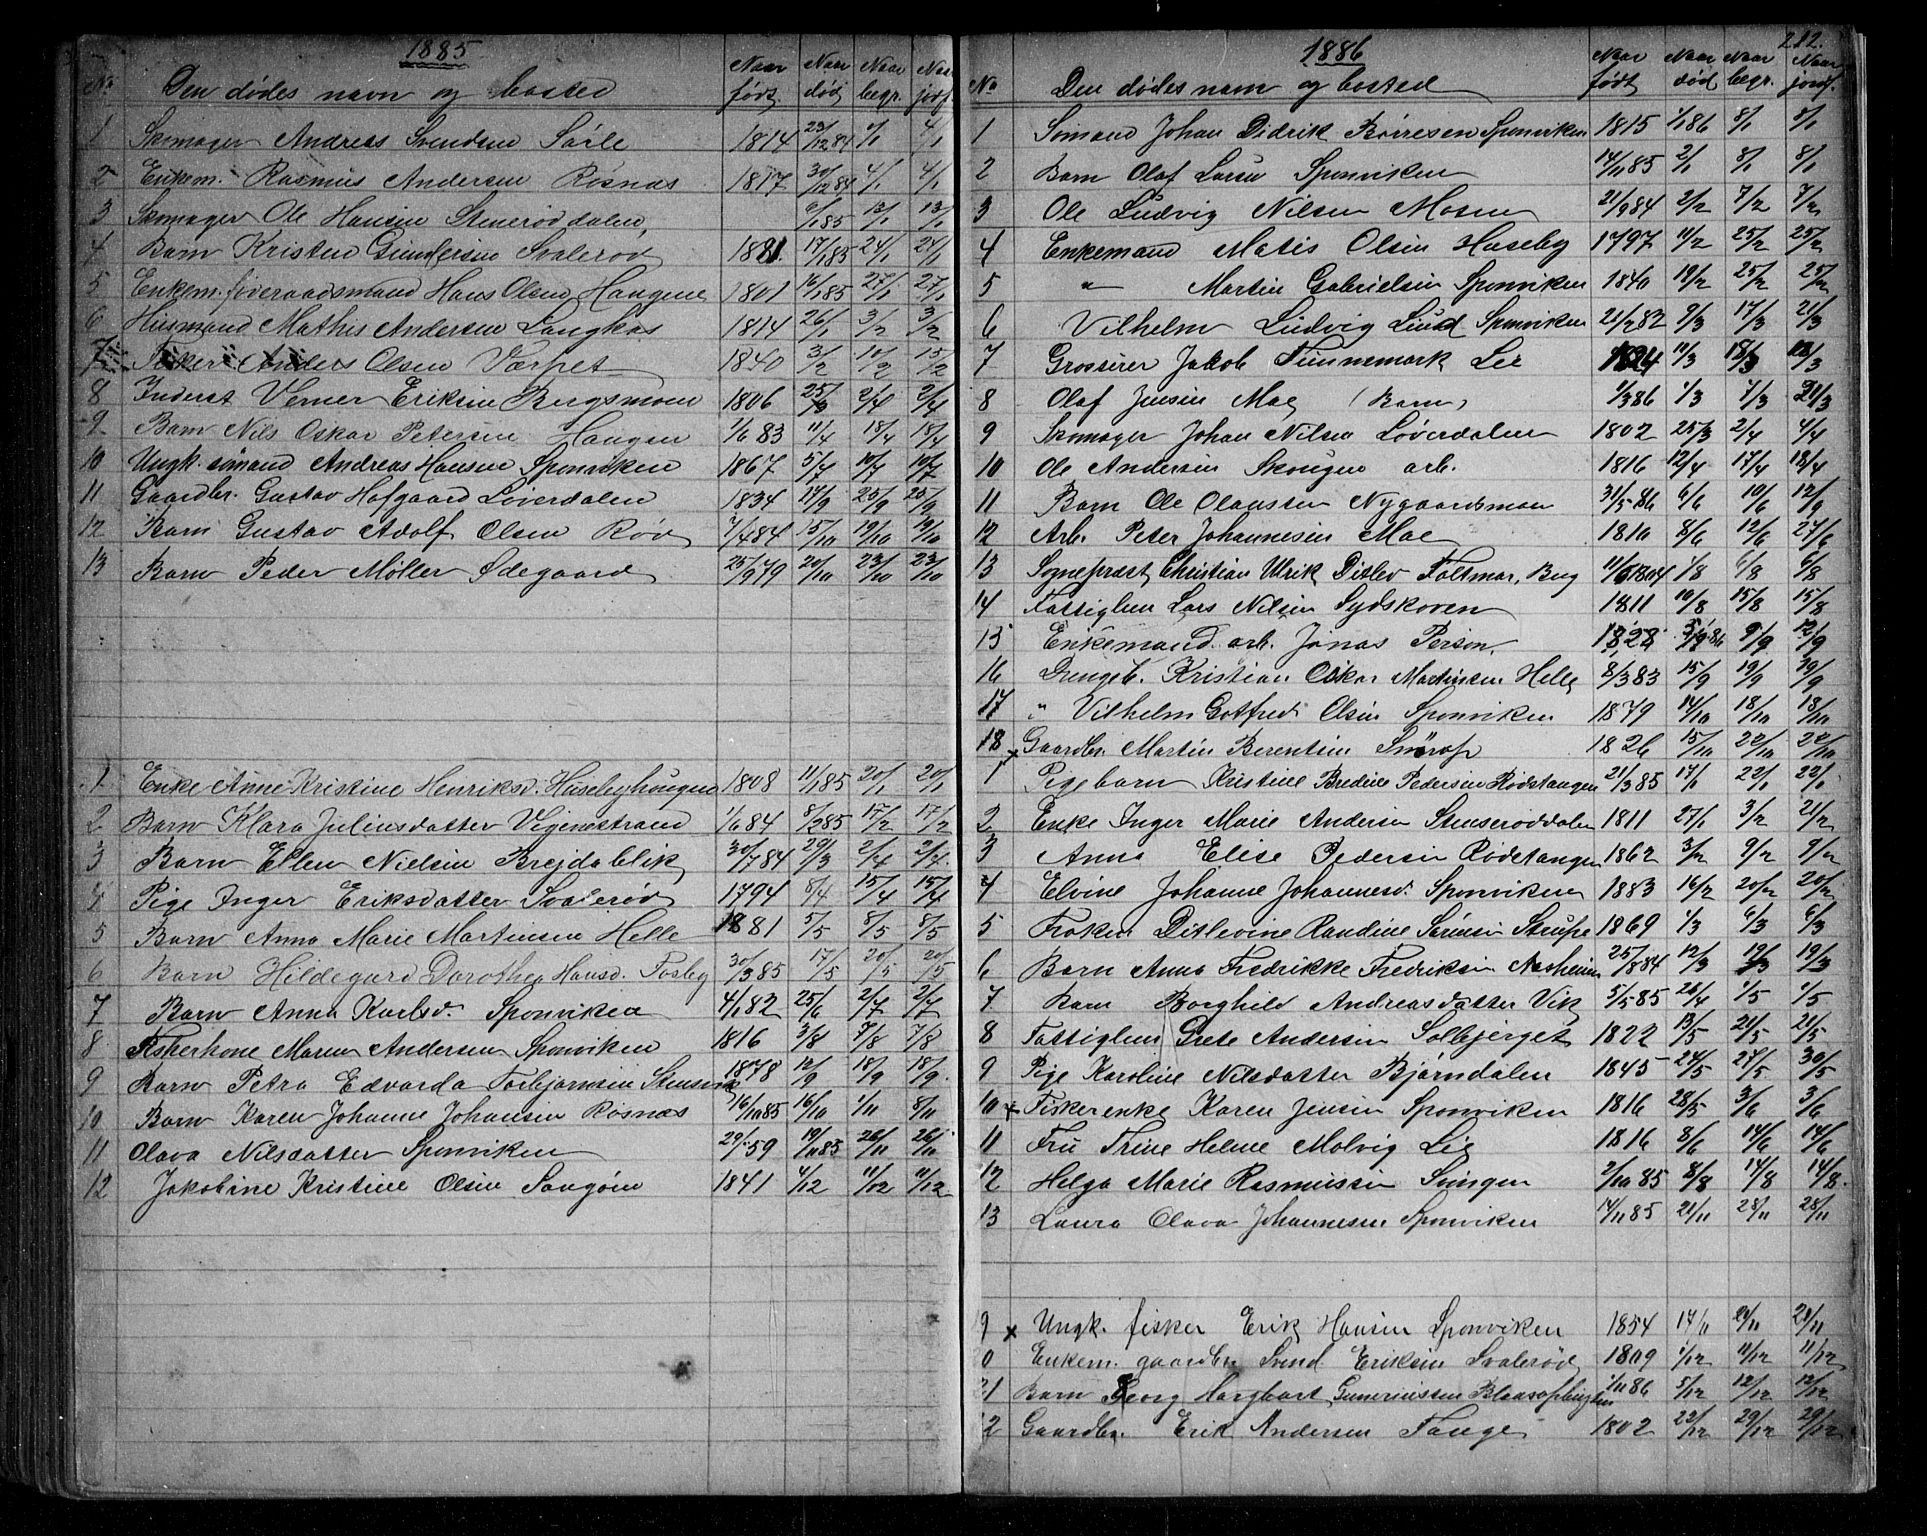 1885
No Den dødes navn og bosted Naar født Naar død Naar begr. Naar jordf.
1 Skomager Andreas Svendsen Sørle 1814 23/12 84 4/1 4/1
2 Enkem. Rasmus Andersen Røsnæs 1817 30/12 84 4/1 4/1
3 Skomager Ole Hansen Stenerøddalen, 6/1 85 13/1 13/1
4 Barn Kristen Gundersen Svalerød 1881. 17/1 85 24/1 24/1
5 Enkem. føderaadsmand Hans Olsen Haugene 1801 16/1 85 27/1 27/1
6 Husmand Mathis Andersen Langkas 1814 26/1 3/2 3/2
7 Fisker Anders Olsen Værpet 1840 3/2 10/2 15/2
8 Inderst Verner Eriksen Bergsmoen 1806 25/3 2/4 2/4
9 Barn Nils Oskar Petersen Haugen 1/6 83 11/4 18/4 18/4
10 Ungk. sømand Andreas Hansen Sponviken 1867 5/7 10/7 10/7
11 Gaardbr. Gustav Hofgaard Løverdalen 1834 17/9 25/9 25/9
12 Barn Gustav Adolf Olsen Rød 7/4 84 15/10 19/10 19/10
13 Barn Peder Møller Ødegaard 25/9 79 20/10 23/10 23/10
1 Enke Anne Kristine Henriksd. Husebyhougen 1808 11/1 85 20/1 20/1
2 Barn Klara Juliusdatter Vejenestrand 1/6 84 8/2 85 17/2 17/2
3 Barn Ellen Nielsen Brejdablik 30/7 84 29/3 2/4 2/4
4 Pige Inger Eriksdatter Svalerød 1794 8/4 15/4 15/4
5 Barn Anna Marie Martinsen Helle 1881 5/5 8/5 8/5
6 Barn Hildegard Dorothea Hansd. Fosby 30/3 85 17/5 20/5 20/5
7 Barn Anna Karlsd. Sponviken 4/1 82 25/6 2/7 2/7
8 Fiskerkone Maren Andersen Sponviken 1816 3/8 7/8 7/8
9 Barn Petra Edvarda Torbjørnsen 1878 12/9 18/9 18/9.
10 Barn Karen Johanne Johansen Røsnæs 16/10 85 16/10 1/11 8/11
11 Olava Nilsdatter Sponviken 29/ 59 19/11 85 26/11 26/11
12 Jakobine Kristine Olsen Saugøen 1841 4/12 11/12 11/12
1886 212.
No Den dødes navn og bosted Naar født Naar død Naar begr. Naar jordf.
1 Sømand Johan Didrik Børresen Sponviken 1815 1/1 86 8/1 8/1
2 Barn Olaf Larsen Sponviken 14/11 85 2/1 8/1 8/1
3 Ole Ludvig Nilsen Mosen 21/9 84 2/2 7/2 7/2
4 Enkemand Matis Olsen Huseby 1797 11/2 25/2 25/2
5 " Martin Gabrielsen Sponviken 1840 19/2 25/2 25/2
6 Vilhelm Ludvig Lund Sponviken 21/2 82 9/3 17/3 21/3
7 Grosserer Jakob Finnemark Lie 1824 11/3 18/3 18/3
8 Olaf Jensen Mae (Barn) 1/3 86 1/3 7/3 21/3
9 Skomager Johan Nilsen Løverdalen 1802 25/3 2/4 4/4
10 Ole Andersen Skougen arb. 1816 12/4 17/4 18/4
11 Barn Ole Olaussen Nygaardsmoen 31/5 86 6/6 10/6 12/9
12 Arb. Peter Johannesen Mae 1810 8/6 12/6 27/6
13 Sogneprest Christian Ulrik Ditlev Foltmar, Berg 11/6 1804 1/8 6/8 6/8
14 Fattiglem Lars Nilsen Sydskoven 1811 10/8 15/8 15/8
15 Enkemand arb. Jonas Person. 1828 5/9 86 9/9 12/9
16 Drengeb. Kristian Oskar Martinsen Helle 8/3 83 15/9 19/9 19/9
17 " Vilhelm Gotfred Olsen Sponviken 1879 14/10 18/10 18/10
18 Gaardbr. Martin Berentsen 1826 15/10 22/10 22/10
1 Pigebarn Kristine Bredine Pedersen Rødstangen 21/3 85 17/1 22/1 22/1
2 Enke Inger Marie Andersen Stenserøddalen 1811 27/1 3/2 21/2
3 Anna Elise Pedersen Rødstangen 1862 3/2 9/2 9/2
4 Elvine Johanne Johannesd. Sponviken 1883 16/2 20/2 20/2
5 Frøken Ditlevine Randine Sørensen Strupe 1869 1/3 6/3 6/3
6 Barn Anna Fredrikke Fredriksen Aasheim 25/8 84 12/3 19/3 19/3
7 Barn Borghild Andreasdatter Vik 5/5 85 26/4 1/5 1/5
8 Fattiglem Grete Andersen Solbjerget 1822 13/5 21/5 21/5
9 Pige Karoline Nilsdatter Bjørndalen 1845 24/5 27/5 30/5
10 x Fiskerenke Karen Jensen Sponviken 1816 28/5 3/6 3/6
11 Fru Trine Helene Molvig Lie 1816 8/6 14/6 14/6
12 Helga Marie Rasmussen Svingen 2/10 85 8/8 14/8 14/8.
13 Laura Olava Johannesen Sponviken 14/11 85 21/11 28/11 28/11
9 x Ungk. fisker Erik Hansen Sponviken 1854 14/11 21/11 21/11
0 Enkem. gaardbr. Svend Eriksen Svalerød 1809 1/12 11/12 11/12
21 Barn Georg Hargbart Gunerinssen 1/11 86 5/12 12/12 12/12
2 Gaardbr. Erik Andersen Fange 1802 22/12 29/12 29/12